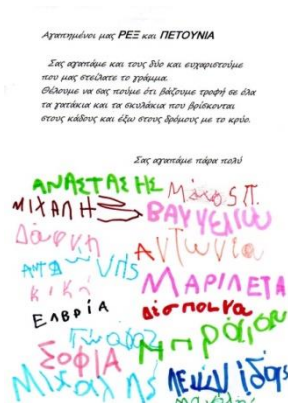 Αγαπημένοι μας ΡΕΞ και ΠΕΤΟΥΝΙΑ
Σας αγαπάμε και τους δύο και ευχαριστούμε
που μας στείλατε το γράμμα.
Θέλουμε να σας πούμε ότι βάζουμε τροφή σε όλα
τα γατάκια και τα σκυλάκια που βρίσκονται
στους κάδους και έξω στους δρόμους με το κρύο.
Σας αγαπάμε πάρα πολύ
ΑΝΑΣΤΑΣΗΣ
ΜΙΧΑΛΗ
ΒΑΓΓΕΛΙΩ
Δάφνη
ΑΝΤωνία
ΑΝΤΩΝης
ΜΑΡΙΛΕΤΑ
κική
ΕΛΒΡΙΑ
Δέσποινα
ΣΟΦΙΑ
Μπράιαν
Μιχάλης
ΛΕΩΝίδας